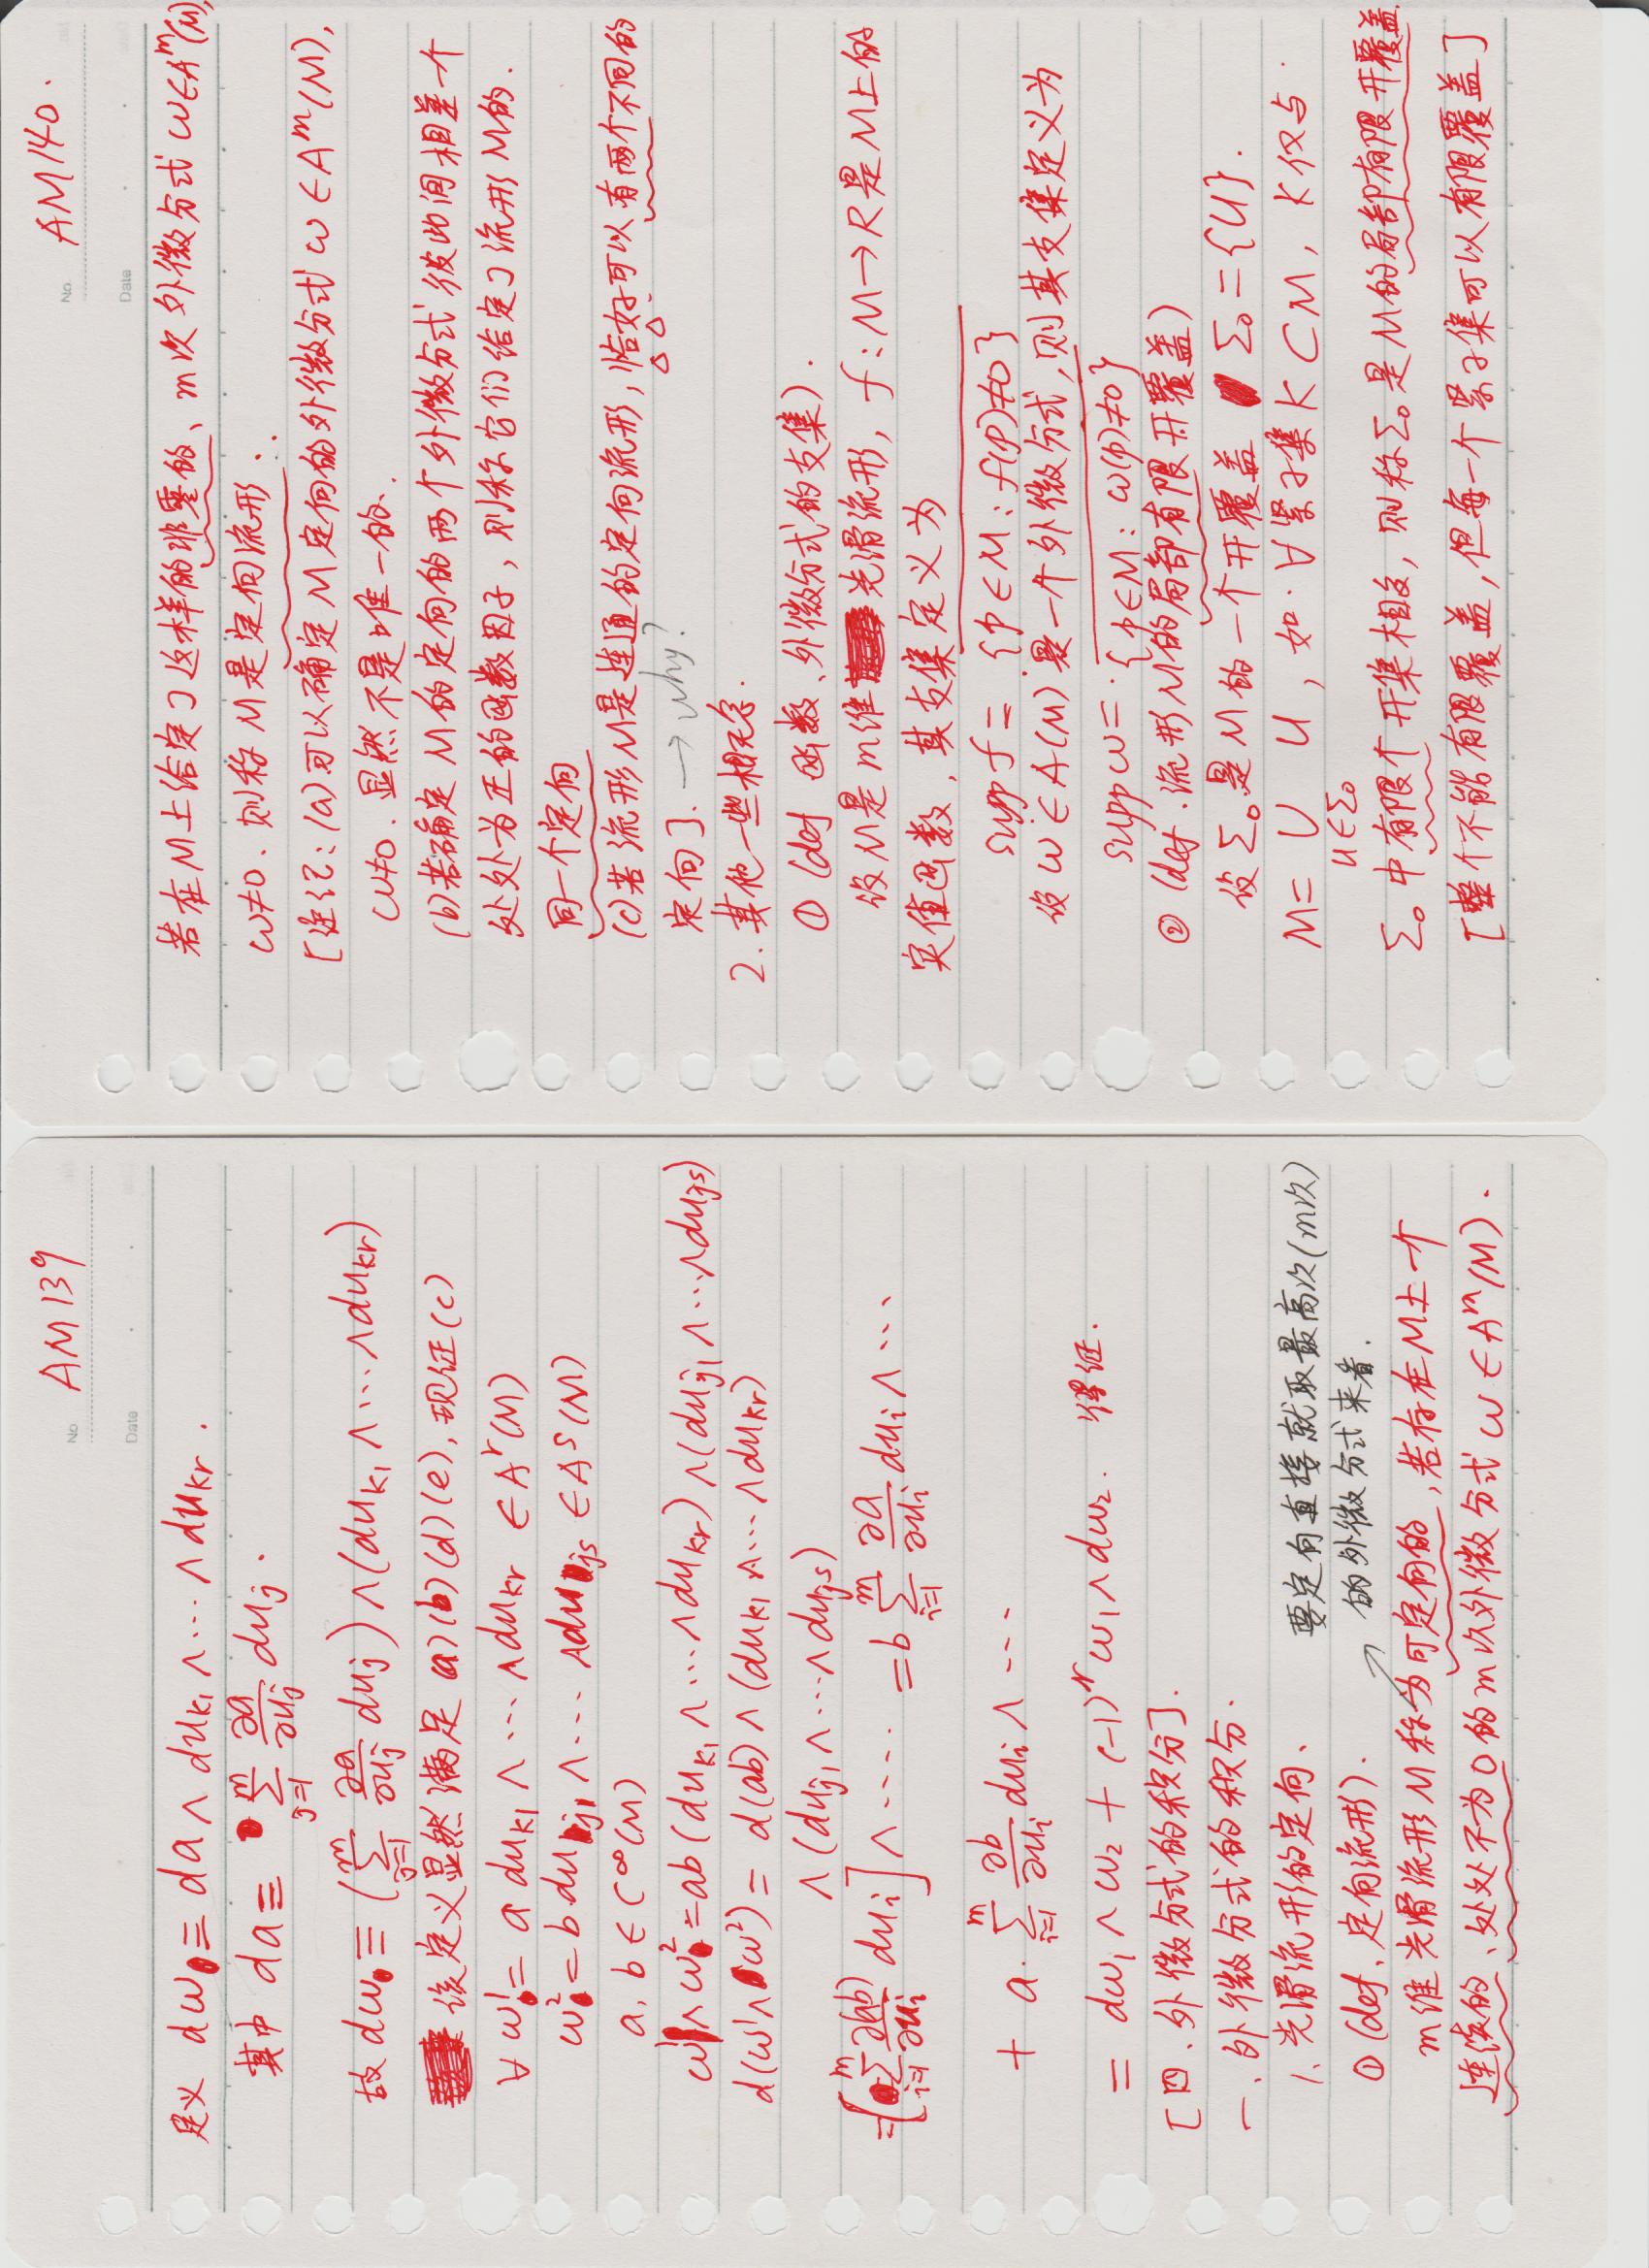 No. AM139
Date
定义 dω ≡ da ∧ du_{k₁} ∧ … ∧ du_{kr}.
其中 da ≡ \sum_{j=1}^{m} \frac{∂a}{∂u_j} du_j.
故 dω ≡ (\sum_{j=1}^{m} \frac{∂a}{∂u_j} du_j) ∧ (du_{k₁} ∧ … ∧ du_{kr})
该定义显然满足 (a)(b)(d)(e), 现证(c)
∀ ω¹ = a du_{k₁} ∧ … ∧ du_{kr} ∈ A^r(M)
ω² = b du_{j₁} ∧ … ∧ du_{js} ∈ A^s(M)
a, b ∈ C^∞(M)
ω¹ ∧ ω² = ab (du_{k₁} ∧ … ∧ du_{kr}) ∧ (du_{j₁} ∧ … ∧ du_{js})
d(ω¹ ∧ ω²) = d(ab) ∧ (du_{k₁} ∧ … ∧ du_{kr})
∧ (du_{j₁} ∧ … ∧ du_{js})
= [\sum_{i=1}^{m} \frac{∂(ab)}{∂u_i} du_i] ∧ …. = b \sum_{i=1}^{m} \frac{∂a}{∂u_i} du_i ∧ …
+ a. \sum_{i=1}^{m} \frac{∂b}{∂u_i} du_i ∧ …
= dω₁ ∧ ω₂ + (-1)^r ω₁ ∧ dω₂. 得证.
[四、外微分式的积分].
一、外微分式的积分.
1. 光滑流形的定向、
要定向直接就取最高次(m次)
的外微分式来看.
① (def. 定向流形).
m维光滑流形M称为可定向的, 若存在M上一个
连续的、处处不为0的m次外微分式 ω ∈ A^m(M).
No. AM140.
Date
若在M上给定了这样的非零的、m次外微分式 ω∈A^m(M),
ω≠0. 则称M是定向流形.
[注记: (a) 可以确定M定向的外微分式 ω ∈ A^m(M),
ω≠0. 显然不是唯一的.
(b) 若确定M的定向的两个外微分式彼此间相差一个
处处为正的函数因子, 则称它们给定了流形M的.
同一个定向
(c) 若流形M是连通的定向流形, 恰好可以有两个不同的
定向]. → why?
2. 其他一些相关念.
① (def 函数、外微分式的支集).
设M是m维光滑流形, f: M→R是M上的
实值函数, 其支集定义为
supp f = \overline{{p∈M: f(p)≠0}}
设 ω ∈ A(M) 是一个外微分式, 则其支集定义为
supp ω = \overline{{p∈M: ω(p)≠0}}
② (def. 流形M的局部有限开覆盖)
设Σ₀是M的一个开覆盖 Σ₀ = {U}.
M = \bigcup_{U∈Σ₀} U, 如. ∀紧子集K⊂M, K仅与
Σ₀中有限个开集相交, 则称Σ₀是M的局部有限开覆盖.
[整个不能有限覆盖, 但每一个紧子集可以有限覆盖]